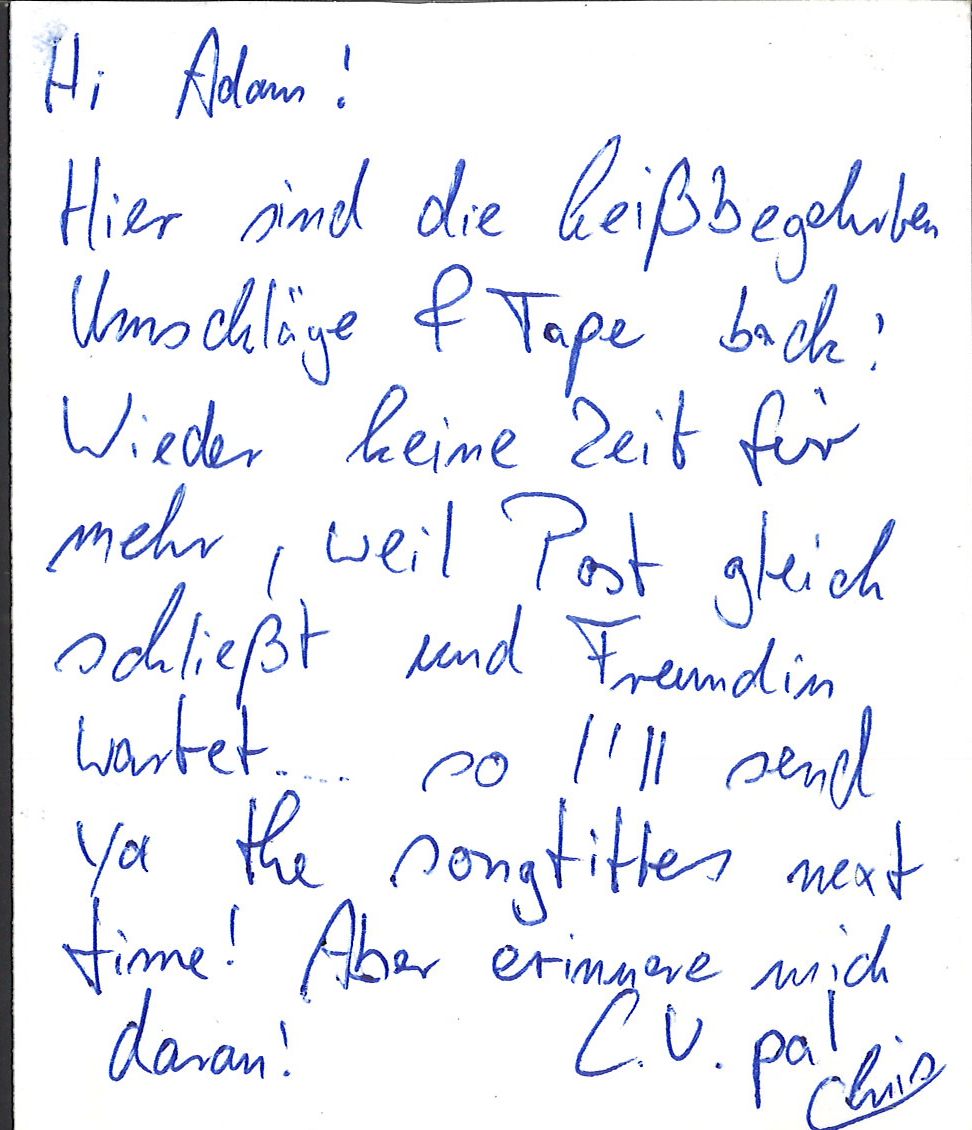 Hi Adam!
Hier sind die heißbegehrten
Umschläge & Tape back!
Wieder keine Zeit für
mehr, weil Post gleich
schließt und Freundin
wartet..... so I'll send
ya the songtittes next
time! Aber erinnere mich
daran! C.U. pal
Chris